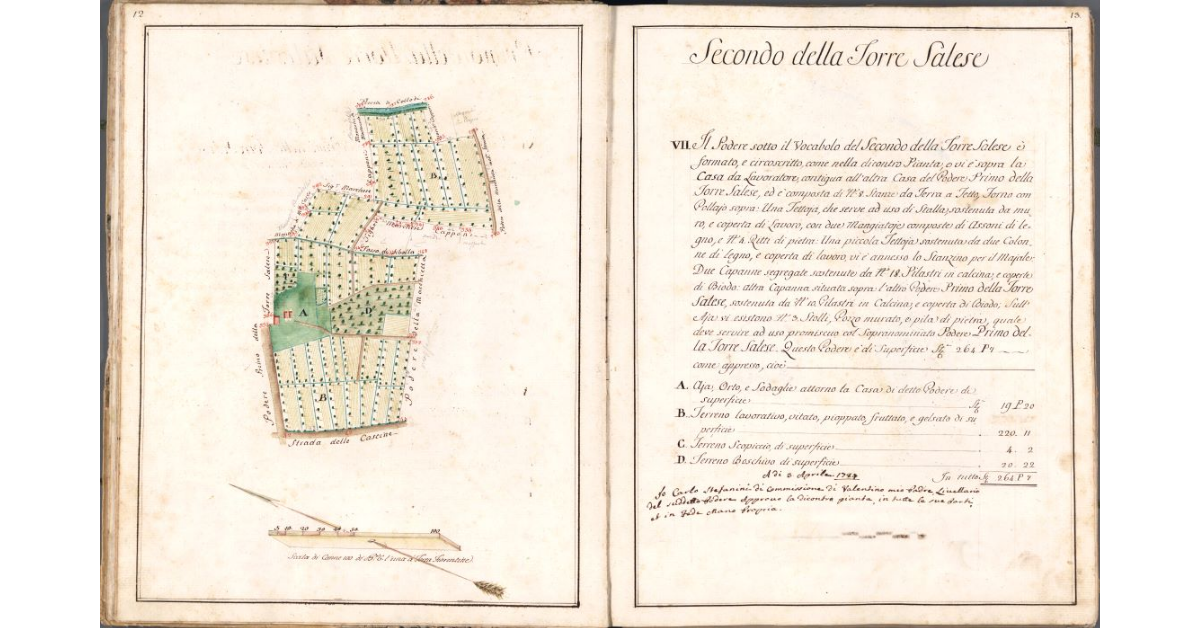 12
Strada delle Cascine
Podere della Moschietta
Fossa di Abella
A
B
B
D
5 10 20 30 40 50 100
Scala di Canne 100 di
13.
Secondo della Torre Salese
VII. Il Podere sotto il Vocabolo del Secondo della Torre Salese è
formato, e circoscritto, come nella dicontro Pianta; e vi è sopra la
Casa da Lavoratore, contigua all'altra Casa del Podere Primo della
Torre Salese, ed è composta di N.º 8. Stanze da Terra a Tetto, Forno con
Pollajo sopra: Una Tettoja, che serve ad uso di Stalla, sostenuta da mu-
ro, e coperta di Lavoro, con due Mangiatoje composte di Assoni di le-
gno, e N.º 4. Ritti di pietra: Una piccola Tettoja sostenuta da due Colon-
ne di legno, e coperta di lavoro, vi è annesso lo Stanzino per il Majale:
Due Capanne segregate sostenute da N.º 18. Pilastri in calcina, e coperte
di Biodo: altra Capanna situata sopra l'altro Podere Primo della Torre
Salese, sostenuta da N.º 10. Pilastri in Calcina, e coperta di Biodo; Sull'
Aja vi esistono N.º 3. Stolli, Pozzo murato, e pila di pietra, quale
deve servire ad uso promiscuo col Soprannominato Podere Primo del-
la Torre Salese. Questo Podere è di Superficie 264. P 7
come appresso, cioè
A. Aja, Orto, e Sodaglie attorno la Casa di detto Podere di
superficie 19 P 20
B. Terreno lavorativo, vitato, pioppato, fruttato, e gelsato di su
perficie 220. 11
C. Terreno Scopiccio, di superficie 4. 2
D. Terreno Boschivo di superficie 20. 22
In tutto 264 P 7
A di 2 Aprile 1784
Io Carlo Stefanini di Commissione di Valentino mio Padre Livellario
del suddetto Podere Approvo la dicontro pianta, in tutte le sue Parti,
et in Fede Mano Propria.